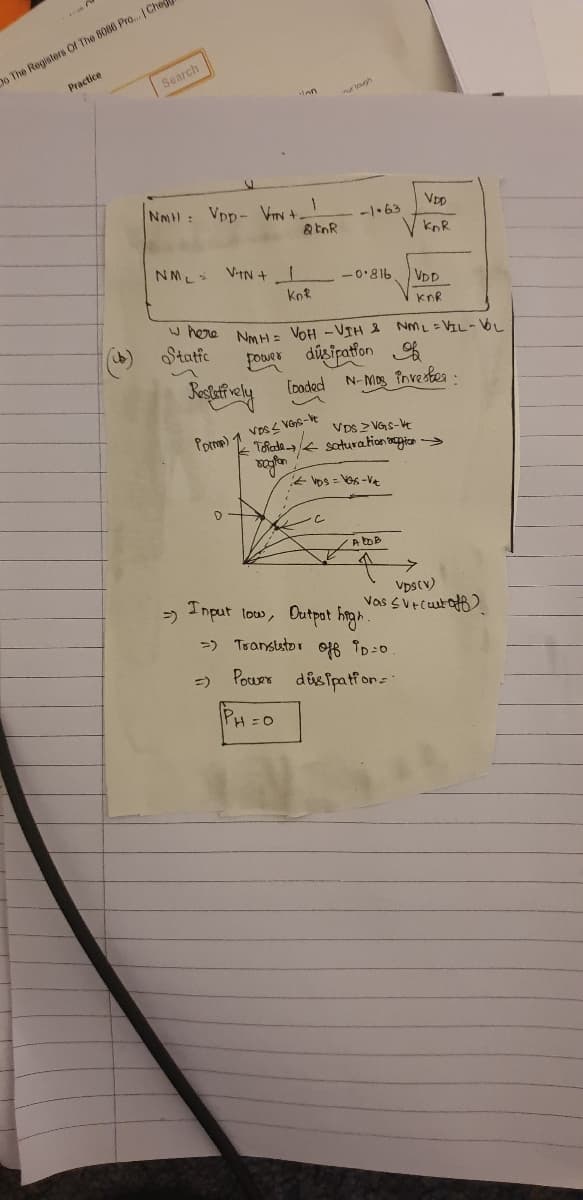 Do The Registers Of The 8086 Pro... | Chegg
Practice
Search
NMH = VDD - VTN + 1/2KnR - 1.63 √VDD/KnR
NML = VTN + 1/KnR - 0.816 √VDD/KnR
where NMH = VOH - VIH & NML = VIL - VOL
(b) Static power dissipation of
Resistively loaded N-MOS inverter :
VDS ≤ VGS-Vt VDS ≥ VGS-Vt
← Triode → ← saturation region →
region
← VDS = VGS - Vt
D
C
A to B
VDS(V)
VGS ≤ Vt (cut off)
⇒ Input low, Output high.
⇒ Transistor off iD=0.
⇒ Power dissipation =
PH = 0